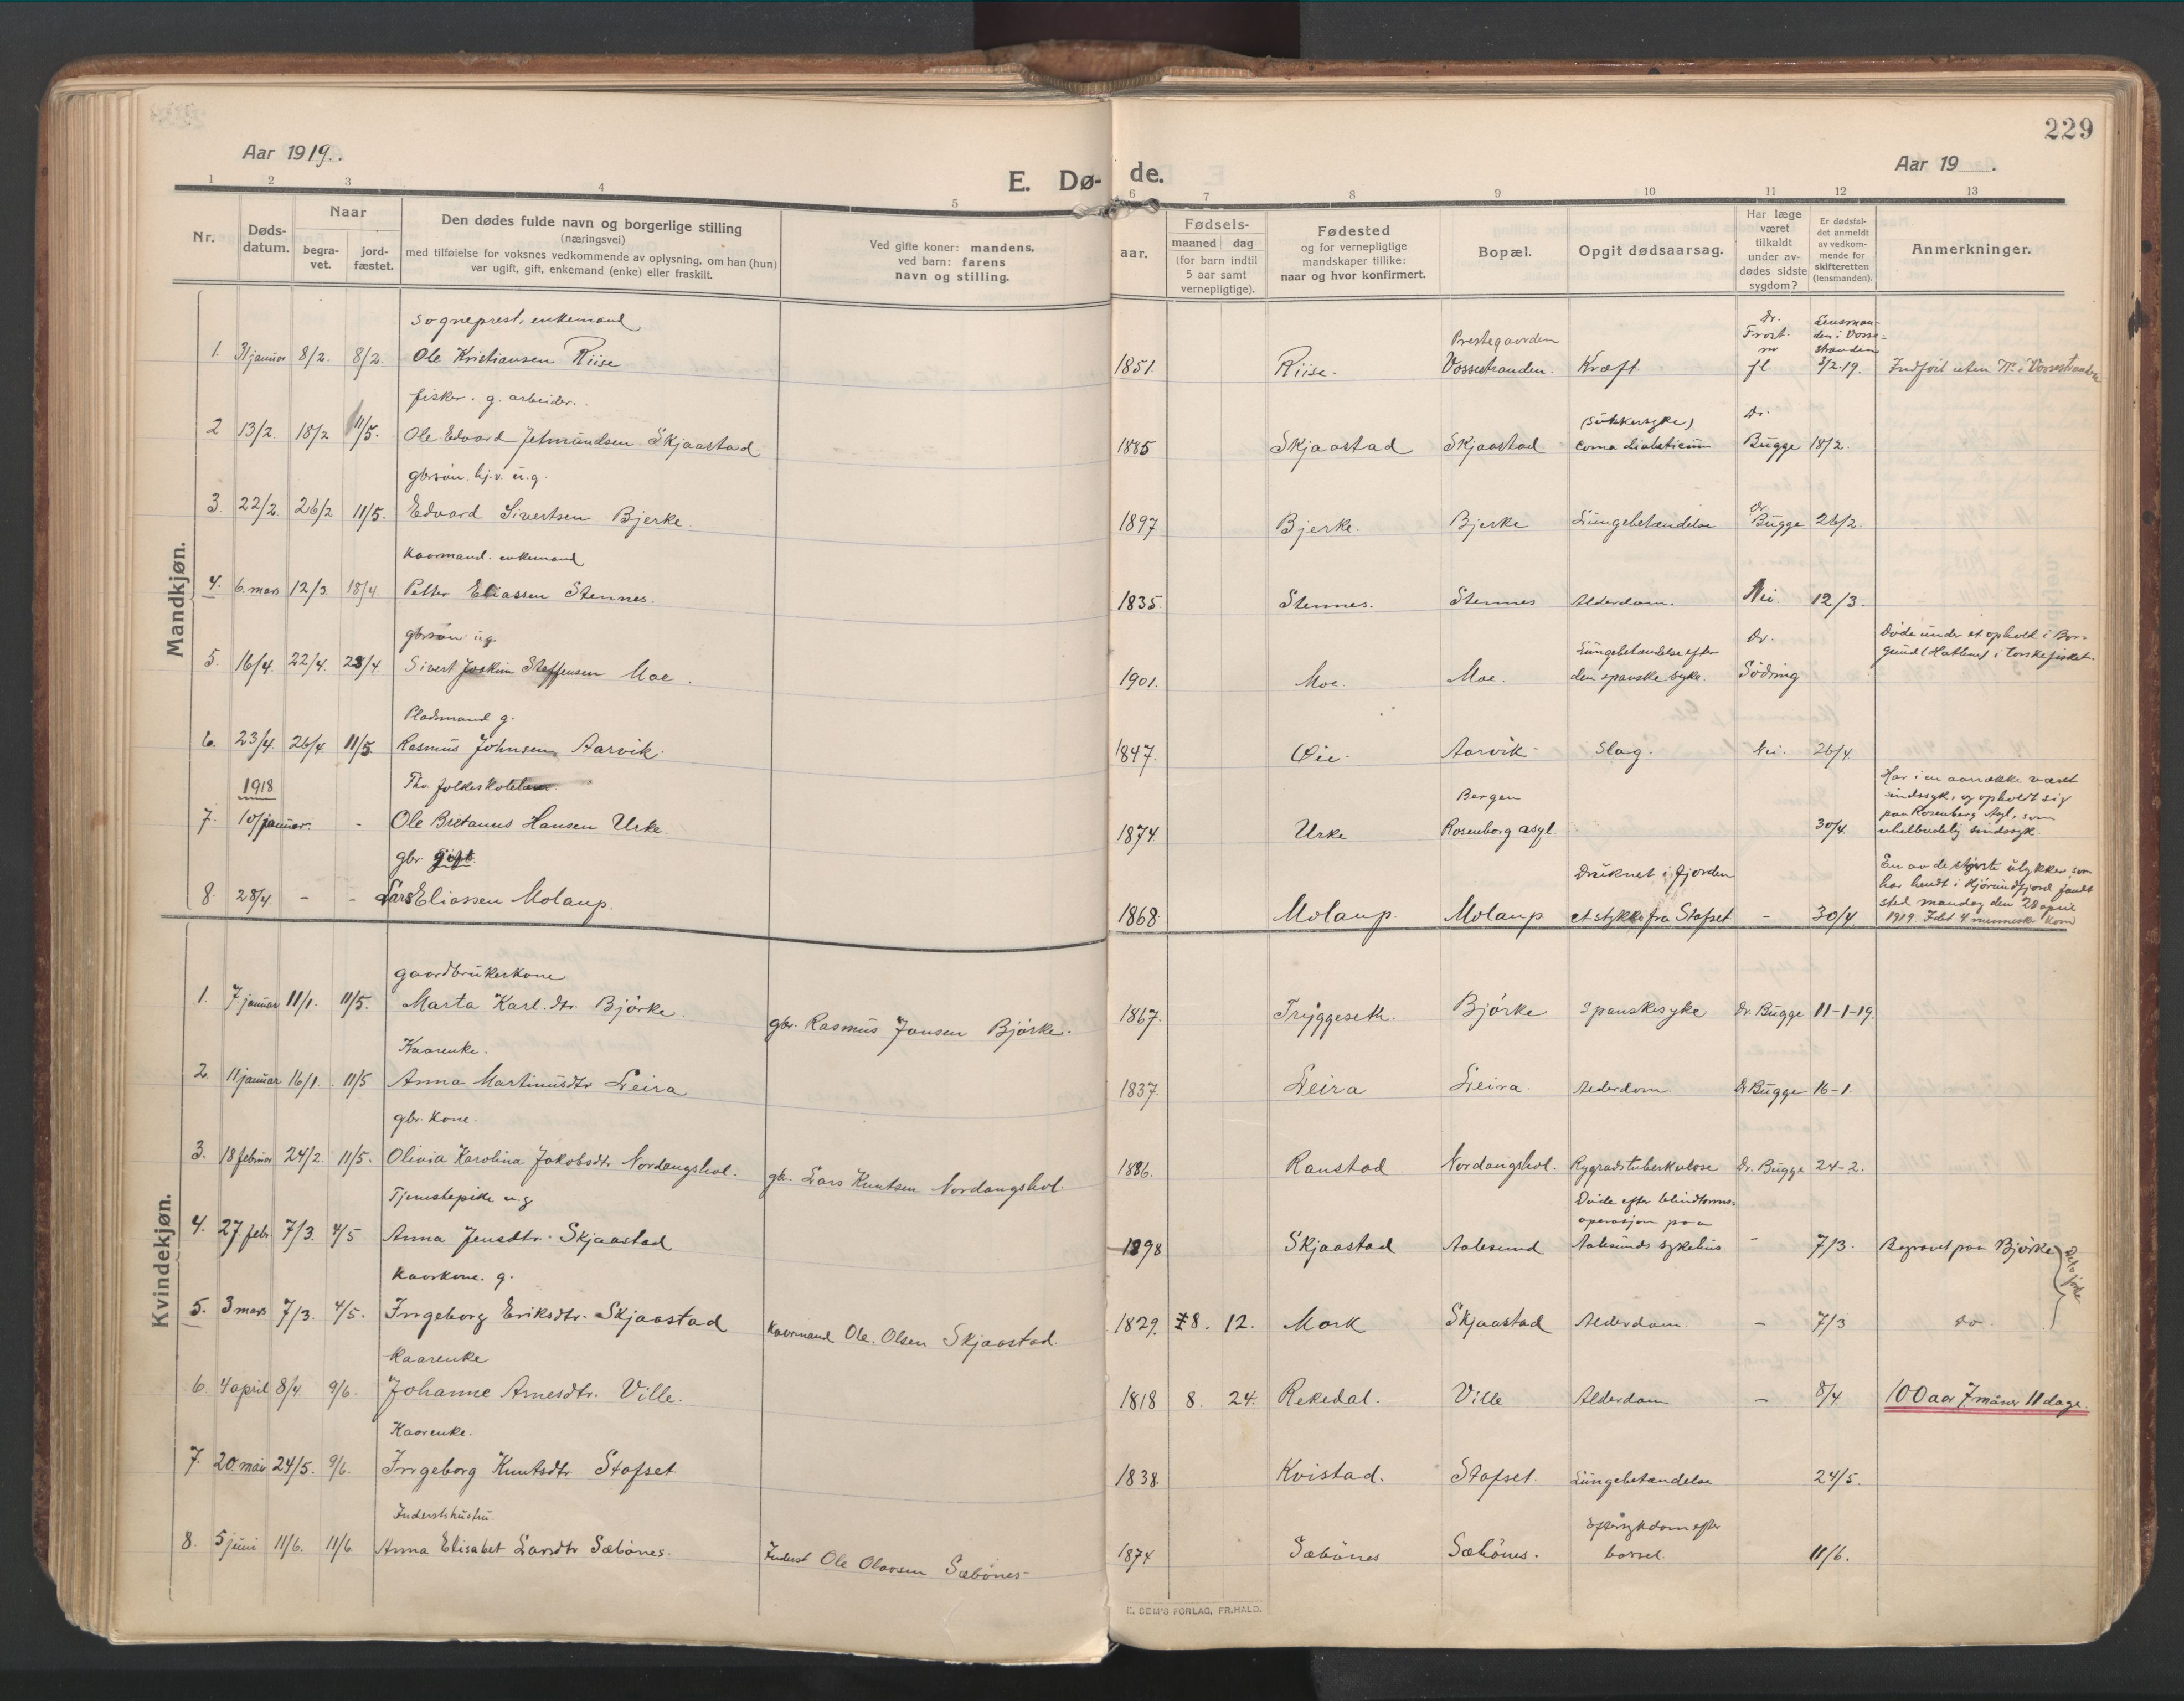 229
Aar 1919.
Aar 19 .
E. Dø- de.
1 2 3 4 5 6 7 8 9 10 11 12 13
Nr.
Døds-
datum.
Naar
begra-
vet.
jord-
fæstet.
Den dødes fulde navn og borgerlige stilling
(næringsvei)
med tilføielse for voksnes vedkommende av oplysning, om han (hun)
var ugift, gift, enkemand (enke) eller fraskilt.
Ved gifte koner: mandens,
ved barn: farens
navn og stilling.
aar.
Fødsels-
maaned dag
(for barn indtil
5 aar samt
vernepligtige).
Fødested
og for vernepligtige
mandskaper tillike:
naar og hvor konfirmert.
Bopæl.
Opgit dødsaarsag.
Har læge
været
tilkaldt
under av-
dødes sidste
sygdom?
Er dødsfal-
det anmeldt
av vedkom-
mende for
skifteretten
(lensmanden).
Anmerkninger.
Mandkjøn.
sogneprest, enkemand
1. 31 januar 8/2. 8/2. Ole Kristiansen Riise
1851. Riise.
Prestegaarden
Vossestranden. Kræft
Dr.
Frost.
fl
Lensman-
den i Vosse-
stranden
3/2.19.
Indført uten Nr. i Vossestranden
fisker. g. arbeider.
2 13/2. 18/2 11/5. Ole Edvard Jetmundsen Skjaastad
1885 Skjaastad Skjaastad
(sukkersyke)
coma diabeticum
Dr.
Bugge 18/2.
gbrsøn. hj.v. u.g.
3. 22/2. 26/2 11/5. Edvard Sivertsen Bjerke.
1897 Bjerke. Bjerke Lungebetændelse
Dr.
Bugge 26/2.
Kaarmand. enkemand
4. 6. mars 12/3. 18/4. Petter Eliassen Stennes.
1835. Stennes. Stennes Alderdom. Nei. 12/3.
gbrsøn ug.
5. 16/4. 22/4. 23/4 Sivert Joakim Steffensen Moe.
1901. Moe. Moe.
Lungebetændelse efter
den spanske syke.
Dr.
Söding
Døde under et ophold i Bor-
gund (Hatlene) i torskefisket.
Pladsmand g.
6. 23/4. 26/4. 11/5 Rasmus Johnsen Aarvik.
1847. Øie. Aarvik Slag. Nei. 26/4
1918
Thv. folkeskolelærer
7. 10/januar. - Ole Bretanus Hansen Urke.
1874. Urke
Bergen
Rosenborg asyl.
30/4.
Har i en aarrække været
sindssyk, og opholdt sig
paa Rosenberg Asyl, som
uhelbredelig sindssyk.
gbr gift.
8. 28/4. - - Lars Eliassen Molaup.
1868 Molaup. Molaup
Druknet i fjorden
et stykke fra Stafset
- 30/4.
En av de største ulykker, som
har hendt i Hjørundfjord fandt
sted mandag den 28 april
1919. Idet 4 mennesker kom
Kvindekjøn.
gaardbrukerkone
1. 7 januar 11/1. 11/5. Marta Karl.dtr. Bjørke. gbr. Rasmus Jonsen Bjørke.
1867. Tryggeseth. Bjørke Spanskesyke Dr. Bugge 11-1-19.
Kaarenke.
2. 11 januar 16/1 11/5 Anna Martinusdtr Leira
1837. Leira Leira. Alderdom. Dr Bugge 16-1.
gbr. kone.
3. 18 februar 24/2. 11/5. Olivia Karolina Jakobsdtr Nordangshol. gbr. Lars Knutsen Nordangshol.
1886. Ranstad Nordangshol. Rygradstuberkulose Dr. Bugge 24-2.
Tjenestepike u.g
4. 27. febr 7/3. 4/5 Anna Jensdtr. Skjaastad
1898 Skjaastad Aalesund
Døde efter blindtarms-
operasjon paa
Aalesunds sykehus
- 7/3. Begravet paa Bjørke
Kaarkone. g.
5. 3 mars 7/3. 4/5. Ingeborg Eriksdtr. Skjaastad Kaarmand Ole. Olsen Skjaastad.
1829. 8. 12. Mork Skjaastad Alderdom. - 7/3 do.
Kaarenke
6. 4 april 8/4. 9/6. Johanne Arnesdtr. Ville.
1818 8. 24. Rekedal. Ville Alderdom - 8/4 100 aar 7 måner 11 dage.
Kaarenke.
7. 20. mai 24/5. 9/6. Ingeborg Knutsdtr Stafset
1838 Kvistad. Stafset. Lungebetændelse 24/5.
Inderstshustru.
8. 5 juni 11/6. 11/6 Anna Elisabet Larsdtr Sæbønes. Inderst Ole Olavsen Sæbønes
1874 Sæbönes Sæbönes.
Eftersykdom efter
barsel.
11/6.
E. SEM'S FORLAG, FR.HALD.